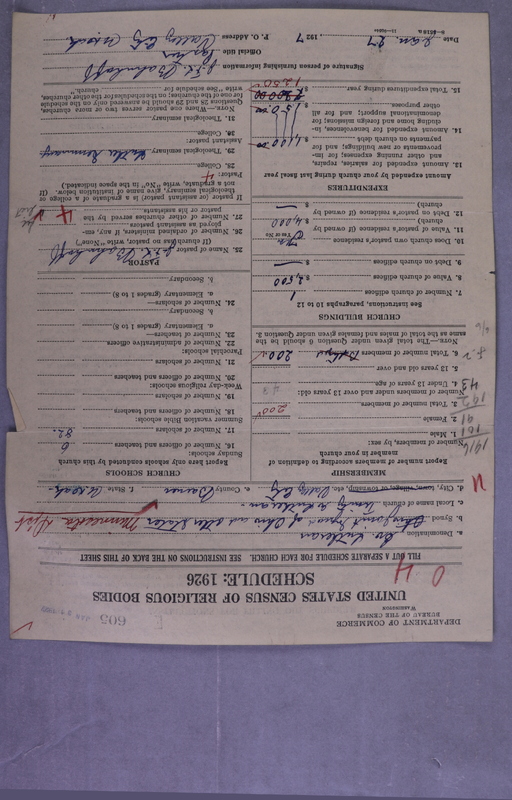 DEPARTMENT OF COMMERCE
BUREAU OF THE CENSUS
WASHINGTON
605
UNITED STATES CENSUS OF RELIGIOUS BODIES
SCHEDULE: 1926
FILL OUT A SEPARATE SCHEDULE FOR EACH CHURCH. SEE INSTRUCTIONS ON THE BACK OF THIS SHEET
a. Denomination
b. Synod Joint Synod of Ohio and other States Minnesota Dist
c. Local name of church
d. City, town, village, or township, etc. Valley City e. County Barnes f. State N. Dak.
Report members of this church according to definition of member in your church
MEMBERSHIP
Number of members, by sex:
1. Male
2. Female
3. Total number of members 200
Number of members under and over 13 years old:
4. Under 13 years of age
5. 13 years old and over
6. Total number of members 200
Note.—The total given under question 6 should be the
same as the total of males and females given under question 3.
CHURCH BUILDINGS
See instructions, paragraphs 10 to 12
7. Number of church edifices 1
8. Value of church edifices $ 2,500
9. Debt on church edifices $
10. Does church own pastor's residence Yes or No
11. Value of pastor's residence (if owned by
church) $ 4,000
12. Debt on pastor's residence (if owned by
church) $
EXPENDITURES
Amount expended during last fiscal year
13. Amount expended for salaries, repairs,
and other running expenses; for im-
provements or new buildings; and for
payments on church debt $ 1,100.00
14. Amount expended for benevolences, in-
cluding home and foreign missions; for
denominational support; and for all
other purposes $ 150.00
15. Total expenditures during year $ 1250
Report here only schools conducted by this church
CHURCH SCHOOLS
Sunday schools:
16. Number of officers and teachers 6
17. Number of scholars 82
Summer vacation Bible schools:
18. Number of officers and teachers
19. Number of scholars
Week-day religious schools:
20. Number of officers and teachers
21. Number of scholars
Parochial schools:
22. Number of administrative officers
23. Number of teachers—
a. Elementary (grades 1 to 8)
b. Secondary
24. Number of scholars—
a. Elementary (grades 1 to 8)
b. Secondary
PASTOR
25. Name of pastor
(If church has no pastor, write "None")
26. Number of ordained ministers, if any, em-
ployed as assistant pastors
27. Number of other churches served by this
pastor or his assistants 4
If pastor (or assistant pastor) is a graduate of a college or
theological seminary, give name of institution below. (If
not a graduate, write "No" in the space indicated.)
Pastor:
28. College
29. Theological seminary
Assistant pastor:
30. College
31. Theological seminary
Note.—Where one pastor serves two or more churches,
Questions 28 and 29 should be answered only on the schedule
for one of the churches; on the schedules for the other churches,
write "See schedule for church."
Signature of person furnishing information
Official title Pastor
P. O. Address Valley City N. Dak.
Date Jan. 27 1927